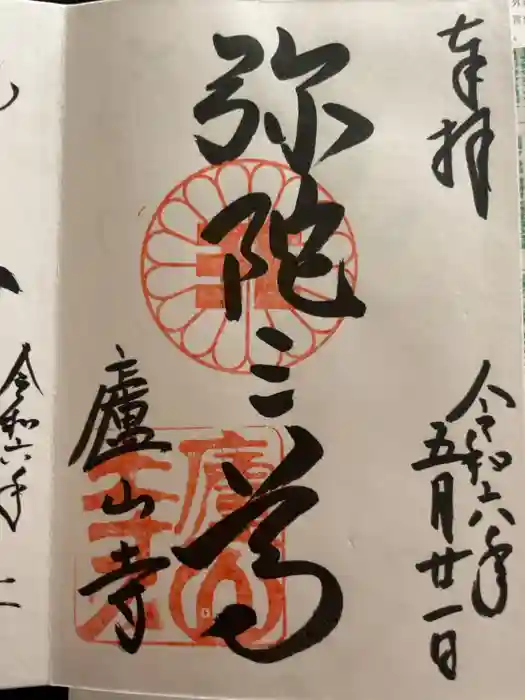 奉拝
令和六年
五月廿一日
弥陀三尊
廬山寺
令和六年
二